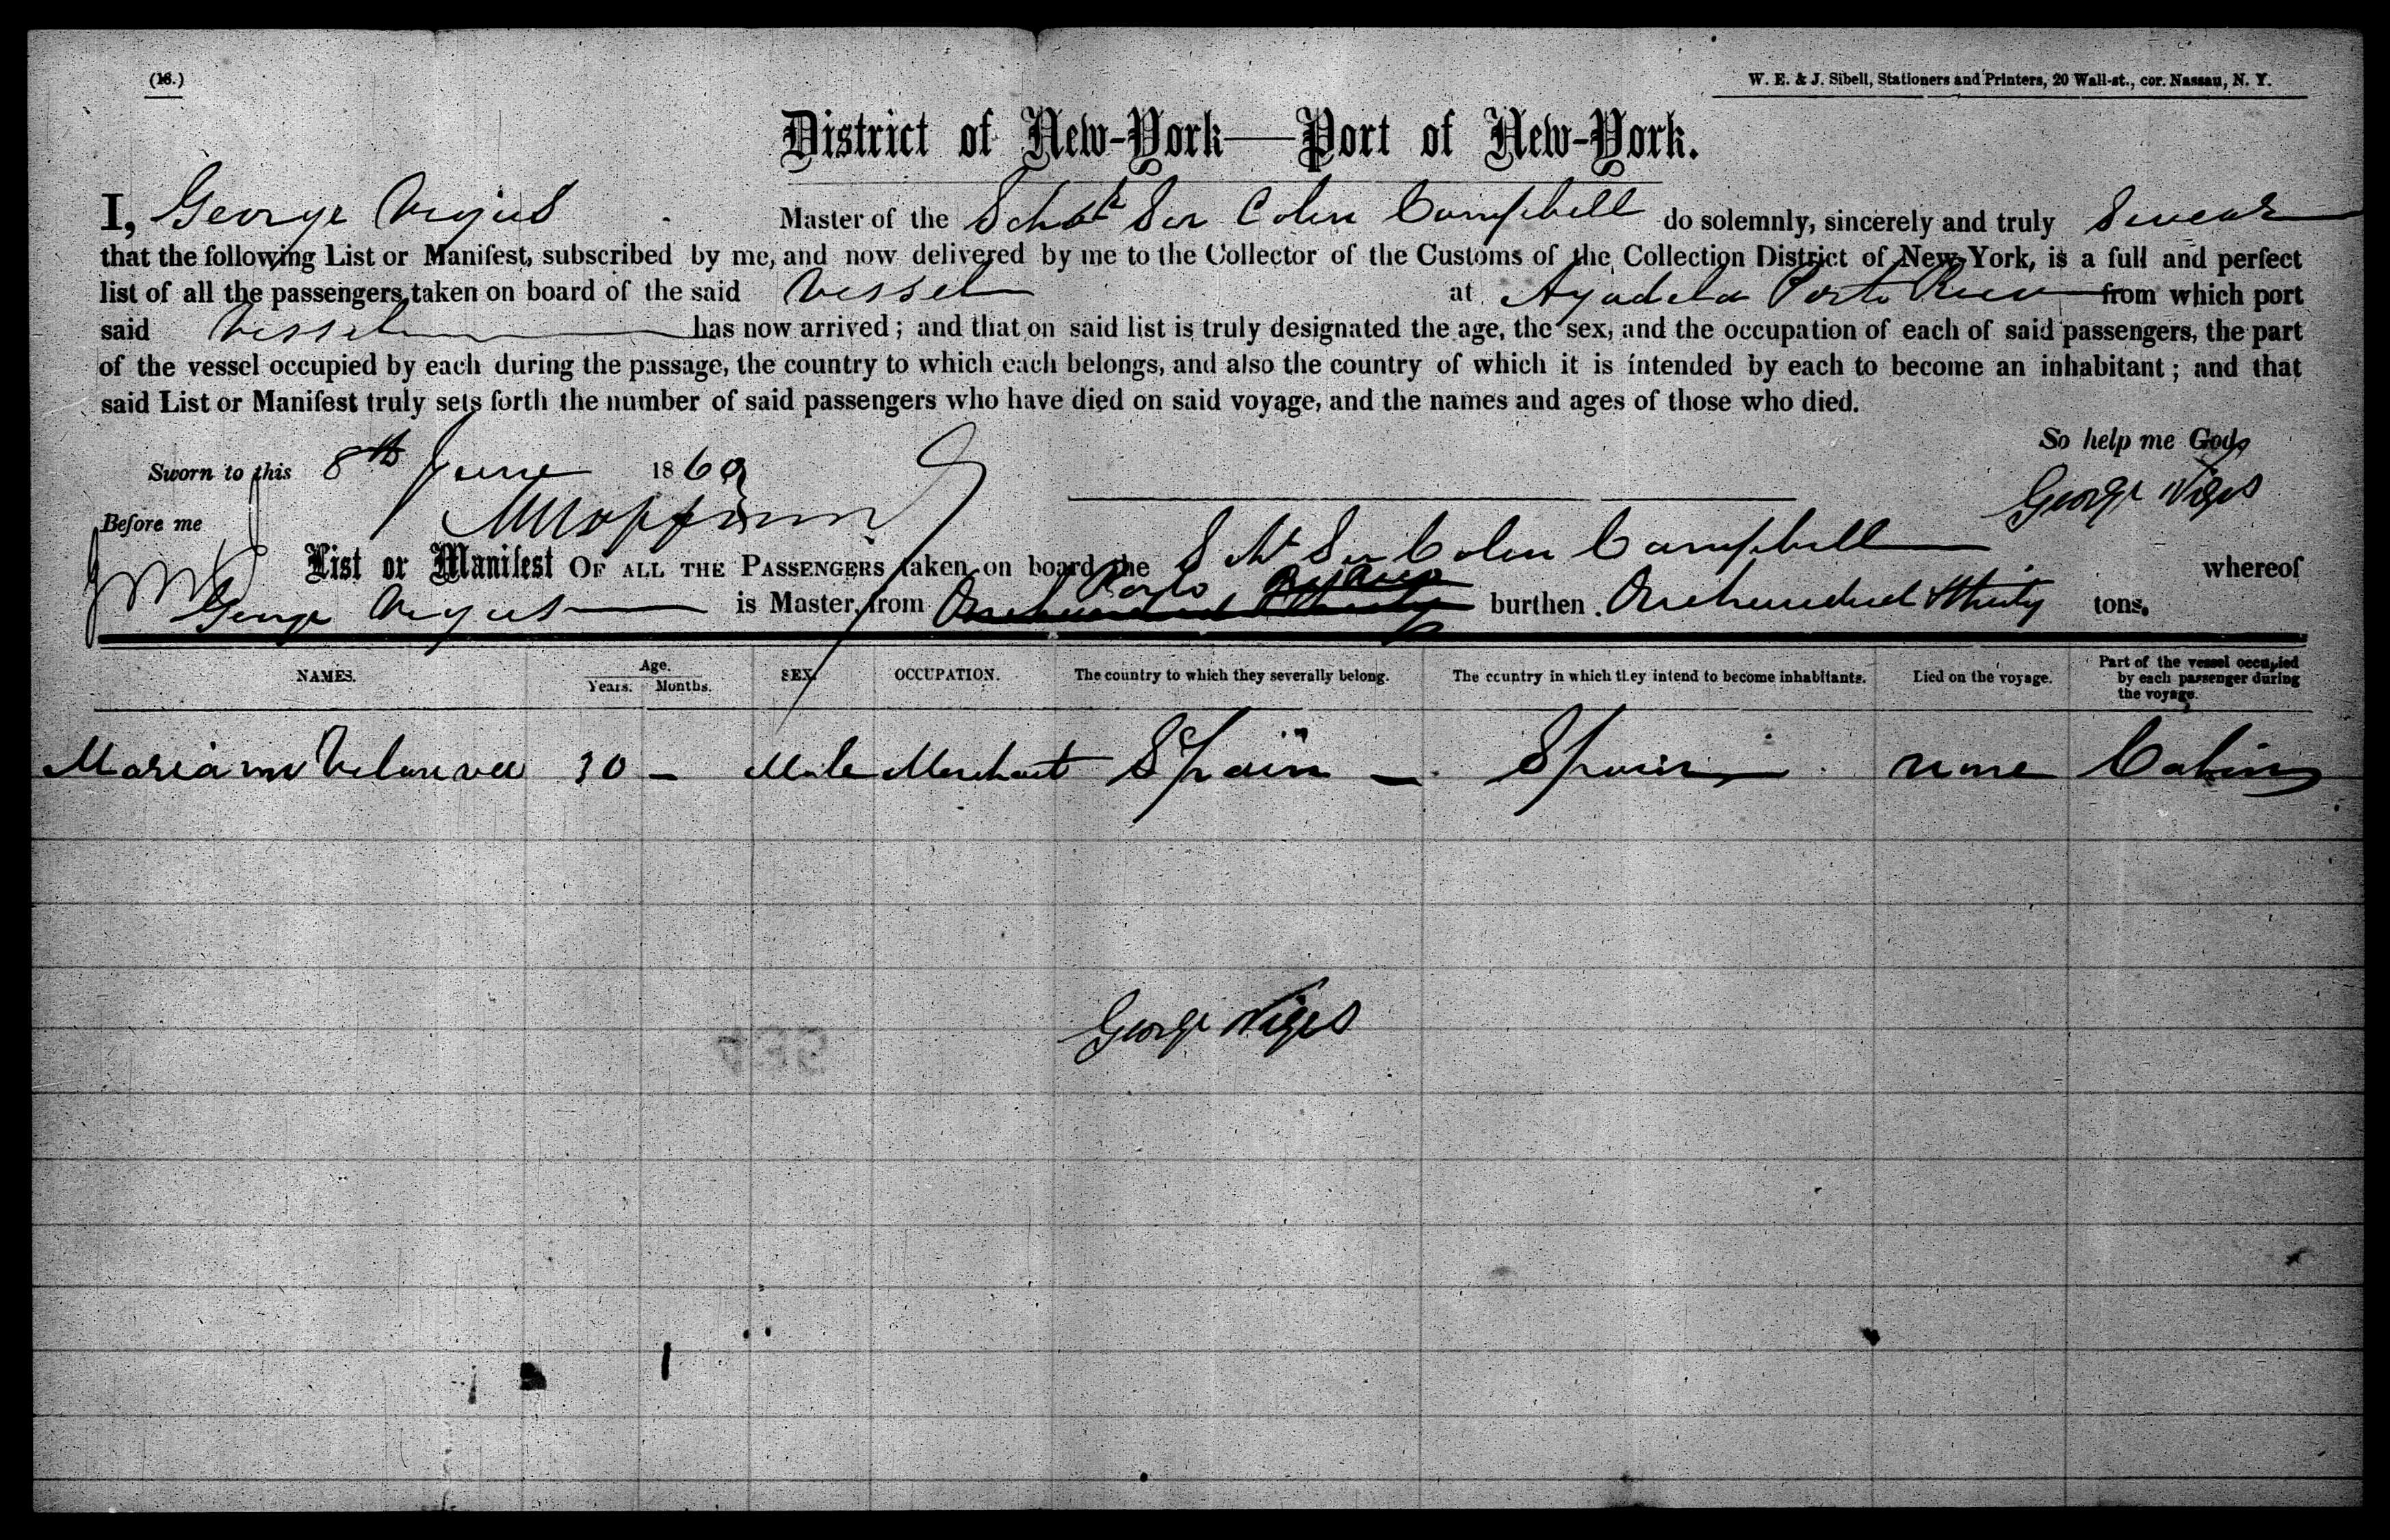 (16.)
W. E. & J. Sibell, Stationers and Printers, 20 Wall-st., cor. Nassau, N. Y.
District of New-York—Port of New-York.
I, George Master of the Sir Colin Campbell do solemnly, sincerely and truly Swear
that the following List or Manifest, subscribed by me, and now delivered by me to the Collector of the Customs of the Collection District of New-York, is a full and perfect
list of all the passengers taken on board of the said Vessel at Porto Rico from which port
said Vessel has now arrived; and that on said list is truly designated the age, the sex, and the occupation of each of said passengers, the part
of the vessel occupied by each during the passage, the country to which each belongs, and also the country of which it is intended by each to become an inhabitant; and that
said List or Manifest truly sets forth the number of said passengers who have died on said voyage, and the names and ages of those who died.
So help me God,
Sworn to this 8th June 1869
George
Before me
List or Manifest OF ALL THE PASSENGERS taken on board the Sir Colin Campbell whereof
George is Master, from Porto Rico burthen Onehundred & thirty tons.
NAMES. Age. Years. Months. SEX. OCCUPATION. The country to which they severally belong. The country in which they intend to become inhabitants. Died on the voyage. Part of the vessel occupied by each passenger during the voyage.
30 – Male Merchant Spain – Spain none Cabin
George